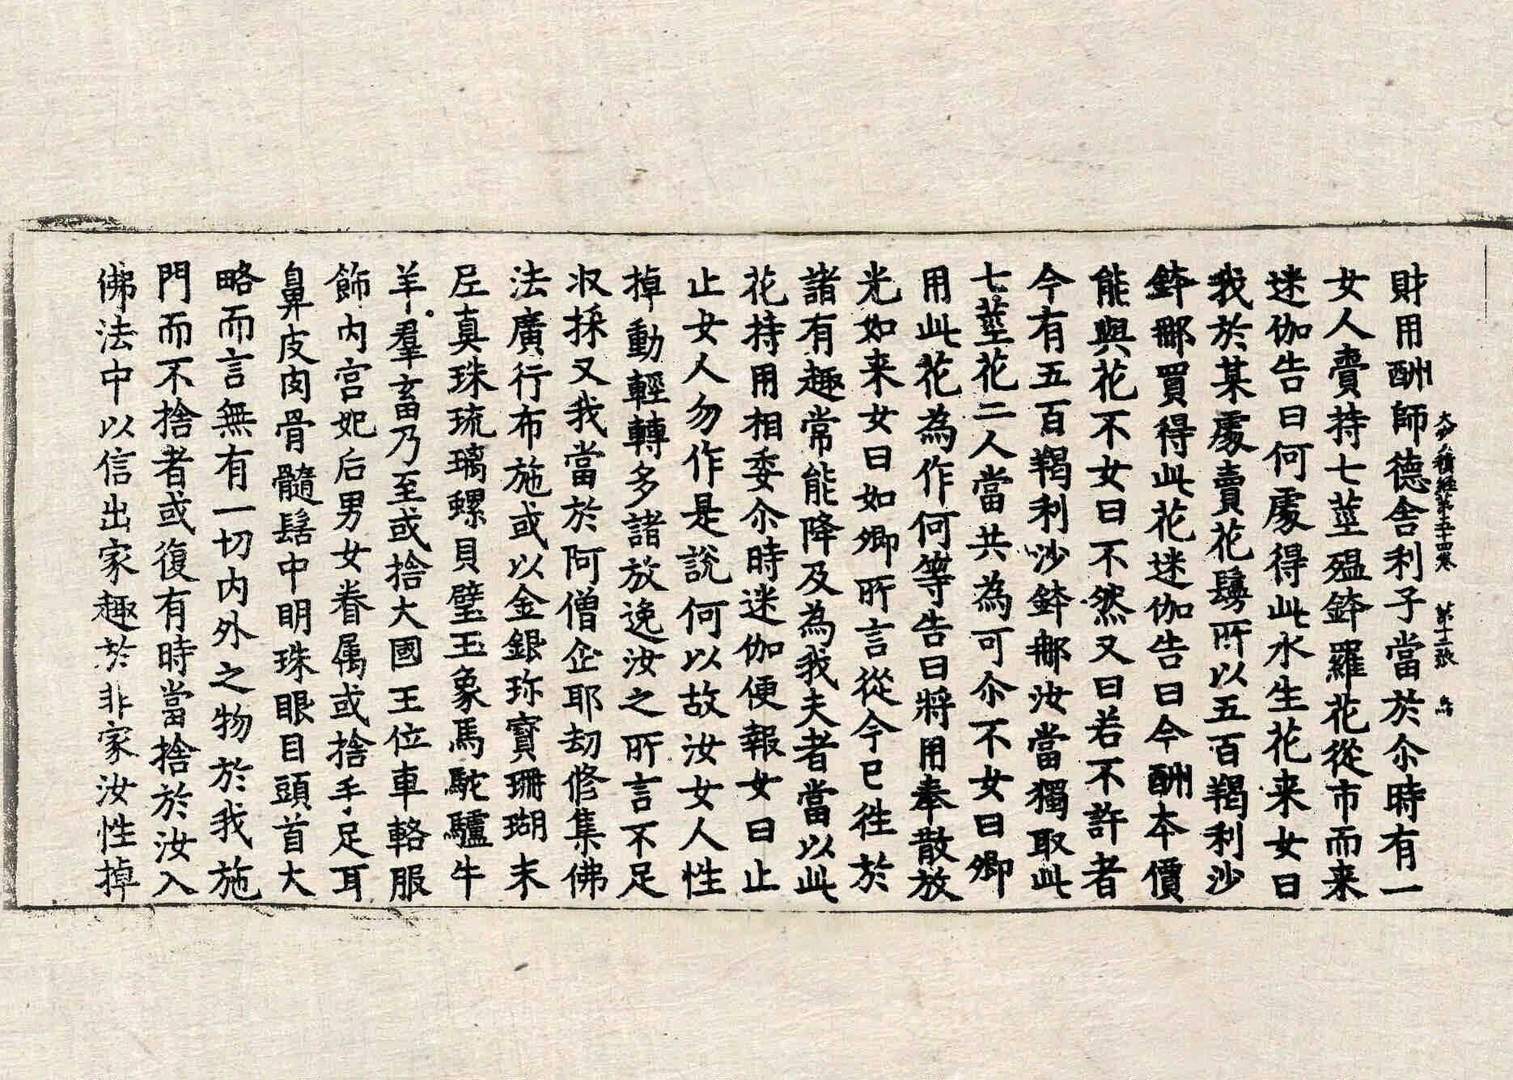 大寶積經第五十四卷　第十二張　鳥
財用酬師德舍利子當於尒時有一
女人賷持七莖殟鉢羅花從市而来
迷伽告曰何處得此水生花来女曰
我於某處賣花鬘所以五百羯利沙
鉢郍買得此花迷伽告曰今酬夲價
能與花不女曰不然又曰若不許者
今有五百羯利沙鉢郍汝當獨取此
七莖花二人當共為可尒不女曰卿
用此花為作何等告曰將用奉散放
光如来女曰如卿所言從今已往於
諸有趣常能降及為我夫者當以此
花持用相委尒時迷伽便報女曰止
止女人勿作是說何以故汝女人性
掉動輕轉多諸放逸汝之所言不足
収採又我當於阿僧企耶劫修集佛
法廣行布施或以金銀珎寶珊瑚末
尼真珠琉璃螺貝璧玉象馬駝驢牛
羊羣畜乃至或捨大國王位車輅服
飾內宮妃后男女眷属或捨手足耳
鼻皮肉骨髓髻中明珠眼目頭首大
略而言無有一切內外之物於我施
門而不捨者或復有時當捨於汝入
佛法中以信出家趣於非家汝性掉